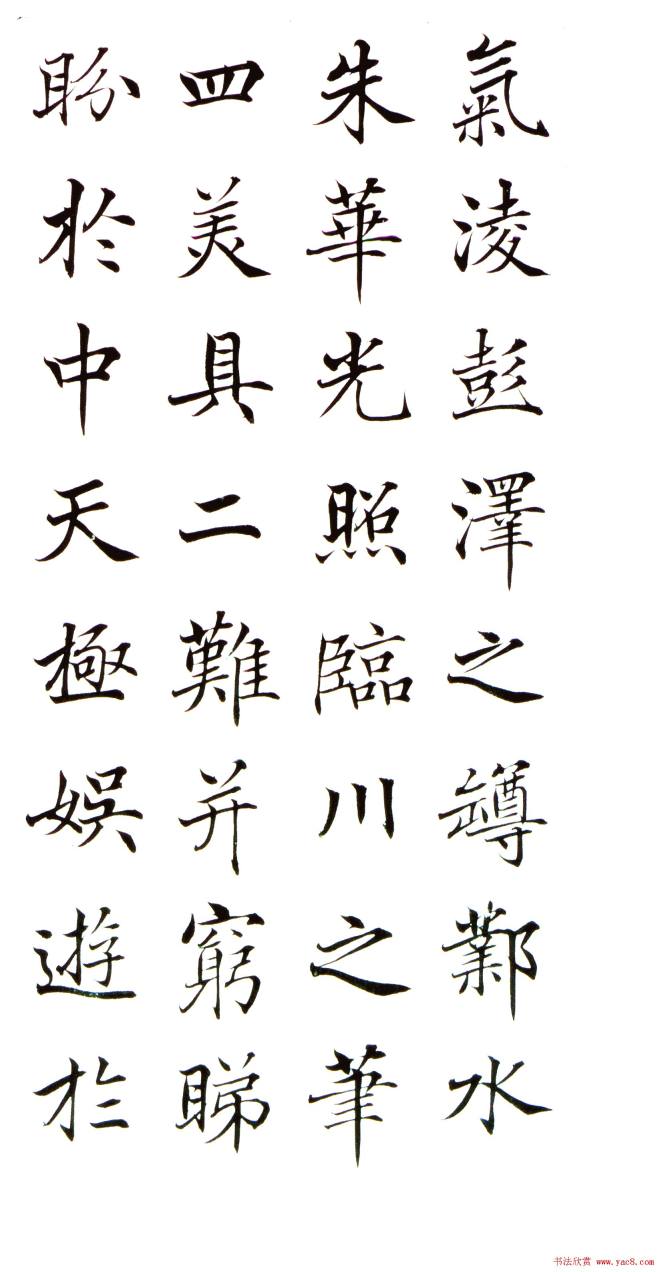 氣淩彭澤之罇鄴水
朱華光照臨川之筆
四美具二難并窮睇
眄於中天極娛遊於
书法欣赏 www.yac8.com